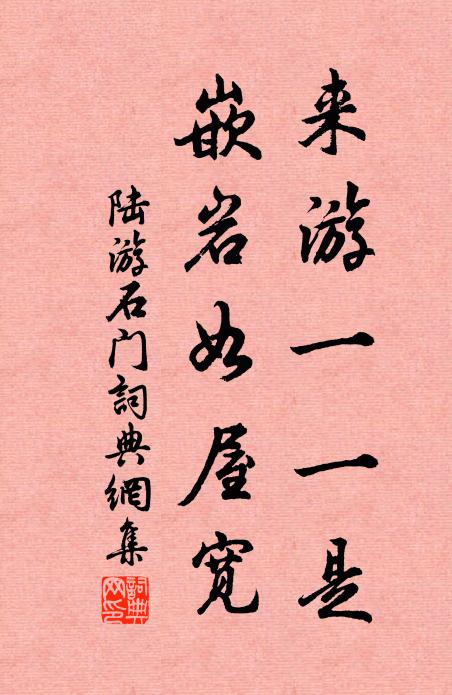 来游一一是
嵌岩如屋宽
陆游石门詞典網集
詞典网印